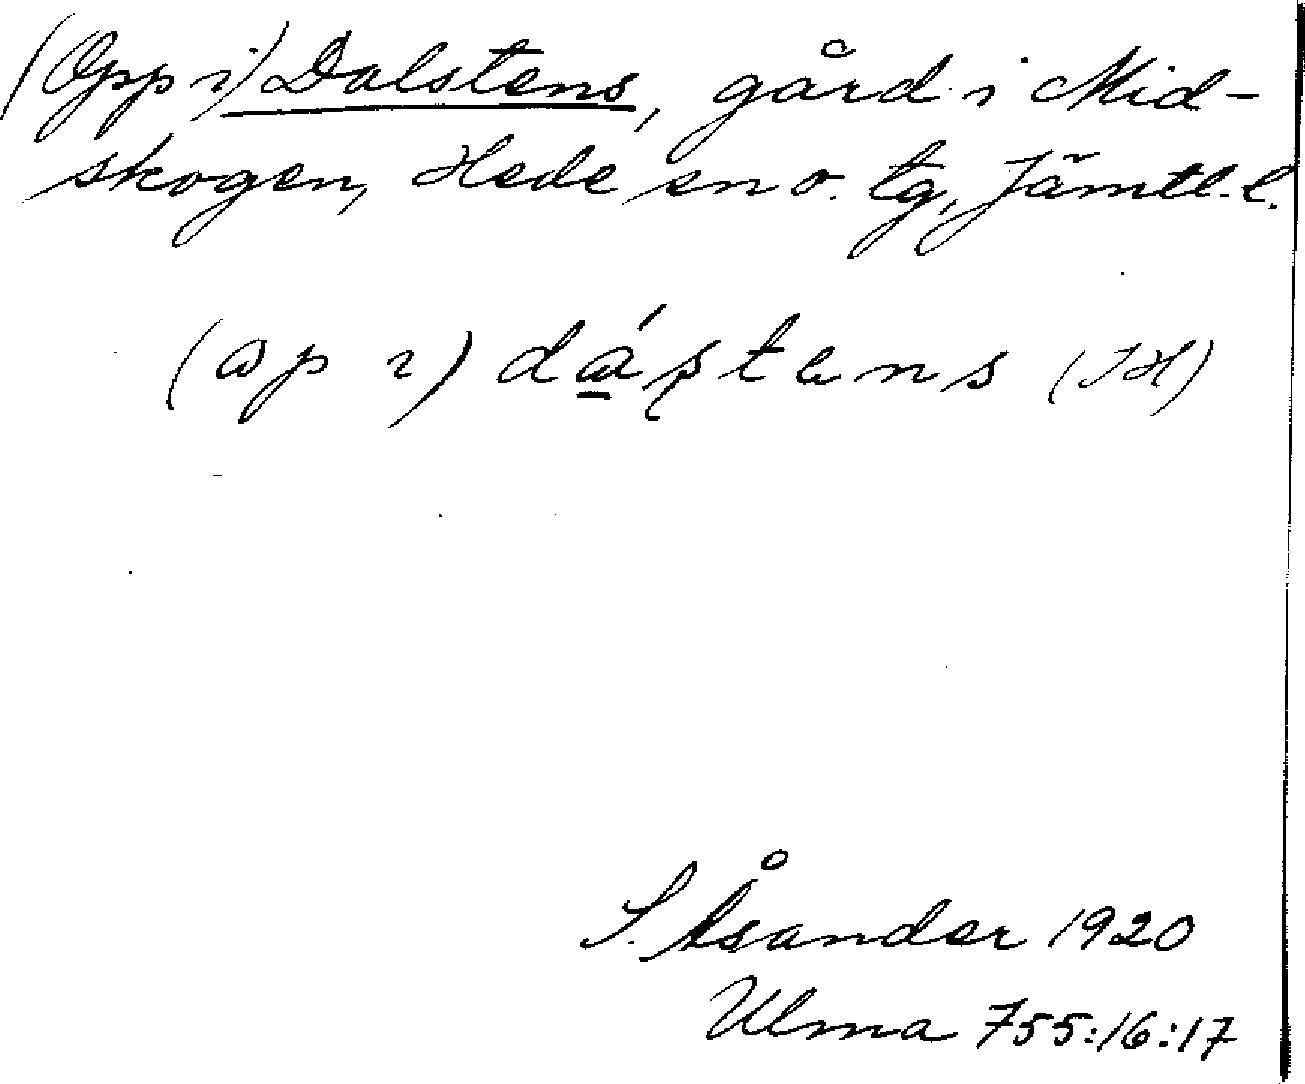 (Opp i) Dalstens, gård i Mid-
skogen, Hede sn o. tg, Jämtl. l.
(ap i) dáʂtens (JH)
S. Åsander 1920
Ulma 755:16:17